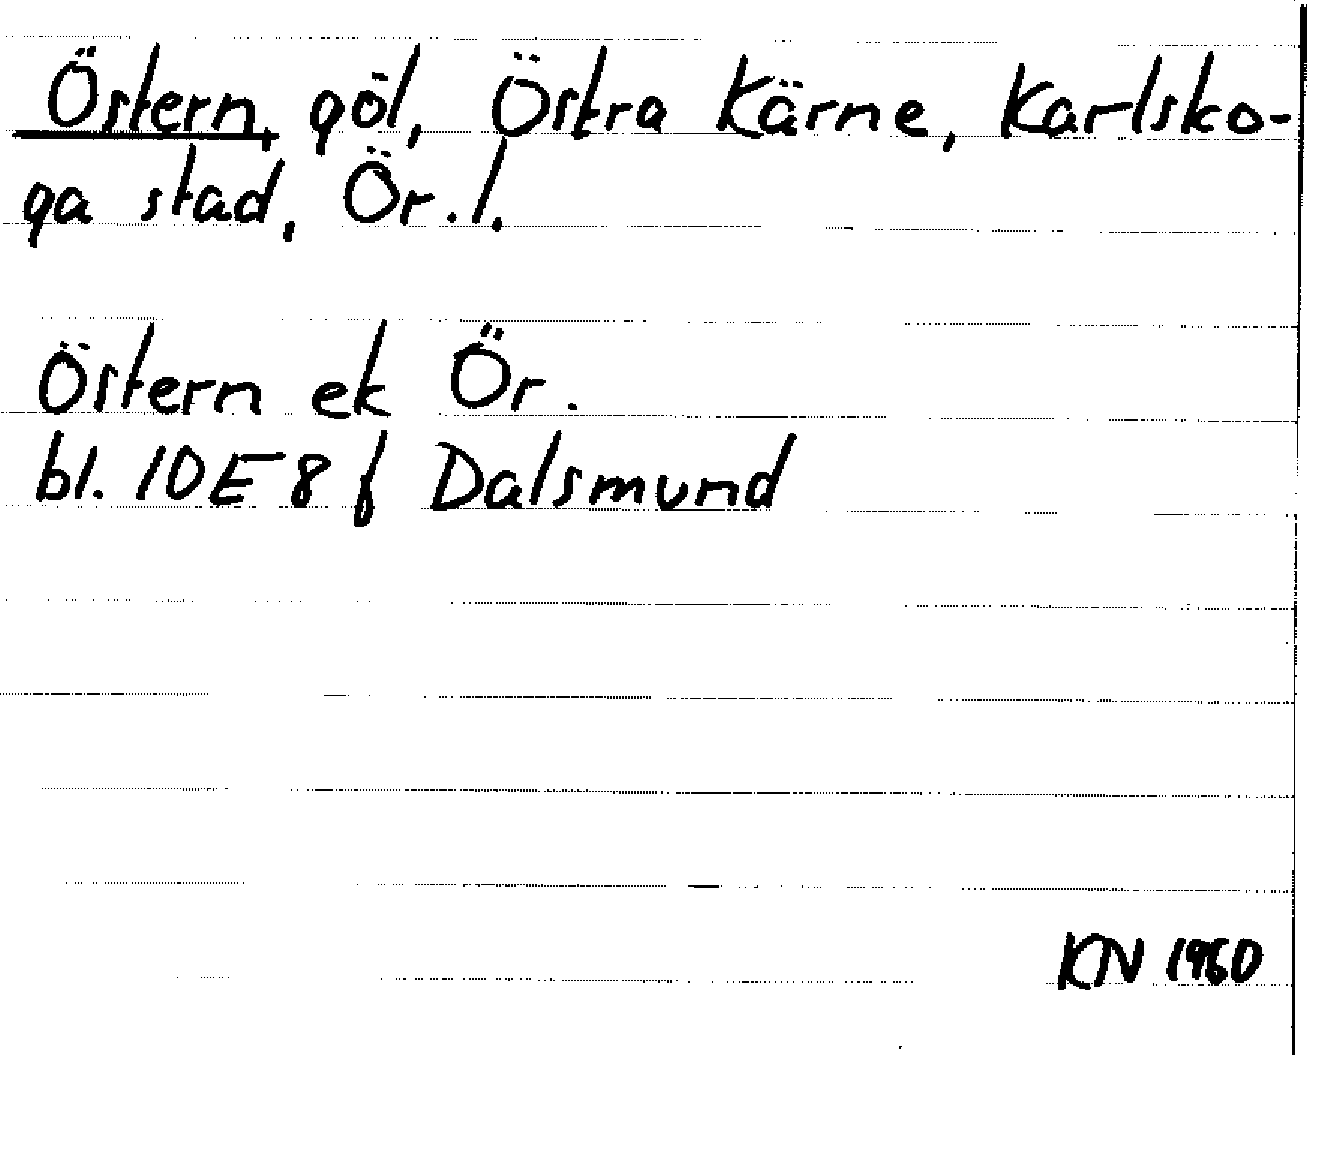 Östern, göl, Östra Kärne, Karlsko-
ga stad, Ör. l.
Östern ek Ör.
bl. 10E8f Dalsmund
KN 1960